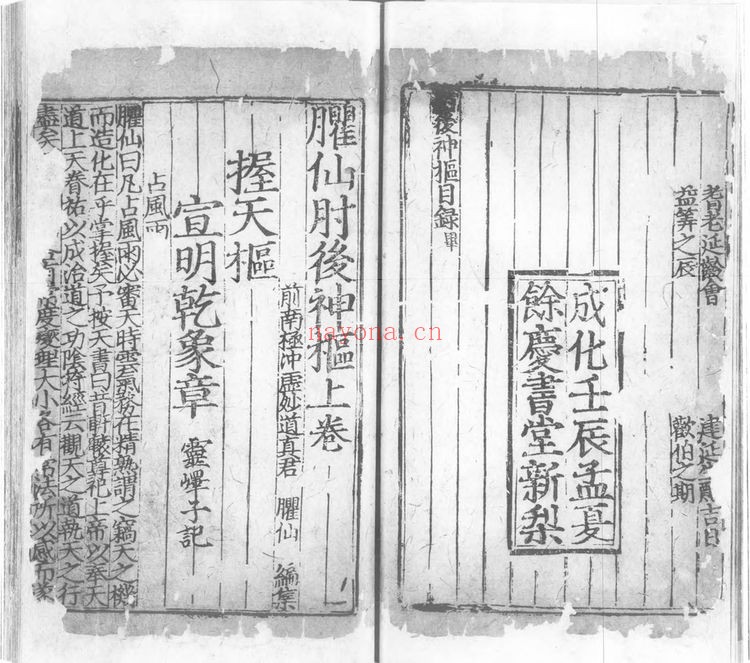 耆老延齡會
益筭之辰
吉日
歡伯之期
後神樞目録畢
成化壬辰孟夏
餘慶書堂新梨
臞仙肘後神樞上卷
前南極冲虚妙道真君 臞仙 編集
握天樞
宣明乾象章 靈嶧子記
占風雨
臞仙曰凡占風雨必審天時雲氣務在精熟謂之竊天之機
而造化在乎掌握矣予按天書曰昔軒轅尊祀上帝以奉天
道上天眷祐以成治道之功陰符經云觀天之道執天之行
盡矣
度變理大小各有 法所以感而
nayona.cn